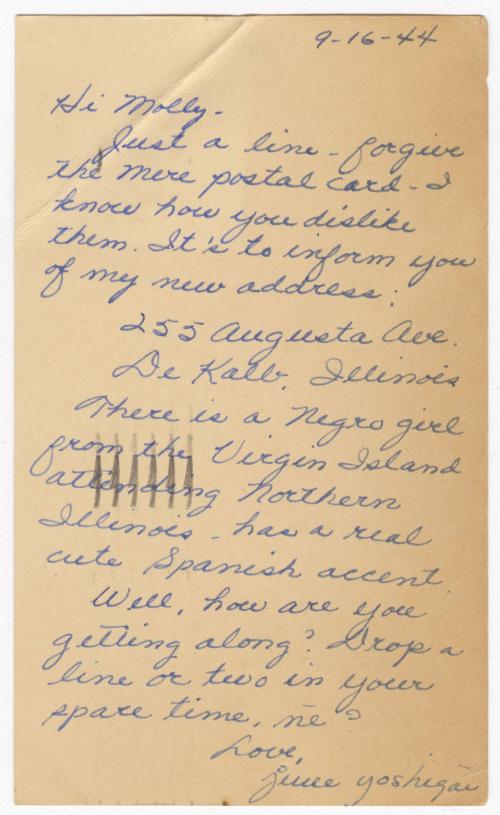 9-16-44
Hi Molly-
Just a line - forgive
the mere postal card - I
know how you dislike
them. It's to inform you
of my new address:
255 Augusta Ave.
De Kalb, Illinois
There is a Negro girl
from the Virgin Island
attending Northern
Illinois - has a real
cute Spanish accent.
Well, how are you
getting along? Drop a
line or two in your
spare time, ne?
Love,
June Yoshigai